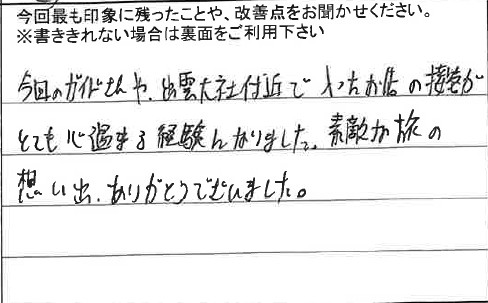 今回最も印象に残ったことや、改善点をお聞かせください。
※書ききれない場合は裏面をご利用下さい
今回のガイドさんや、出雲大社付近で入ったお店の接客が
とても心温まる経験になりました。素敵な旅の
想い出、ありがとうございました。